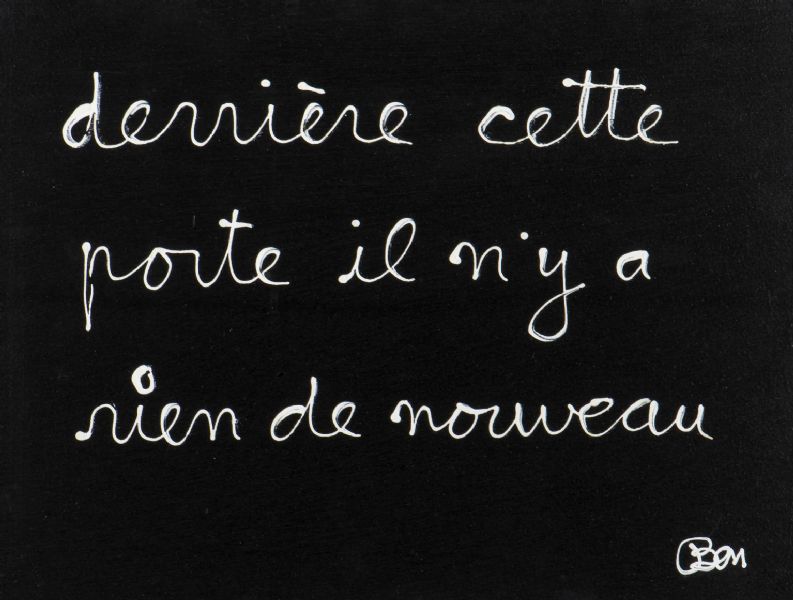 derrière cette
porte il n'y a
rien de nouveau
Ben